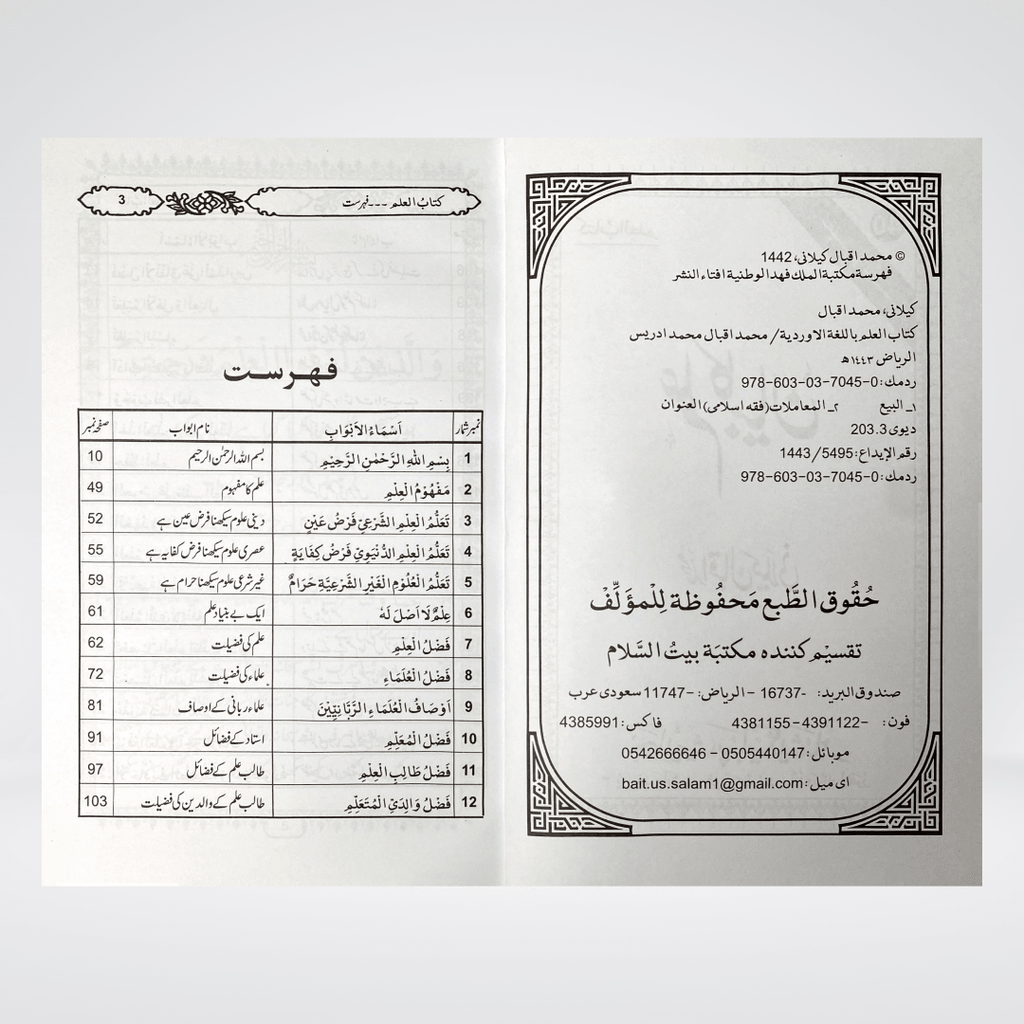 © محمد اقبال کیلانی، 1442
فهرسة مكتبة الملك فهد الوطنية افتاء النشر
کیلانی، محمد اقبال
كتاب العلم باللغة الاوردية / محمد اقبال محمد ادريس
الرياض ١٤٤٣ھ
ردمك: 0-7045-03-603-978
١ـ البيع ٢ـ المعاملات (فقه اسلامى) العنوان
ديوى 203.3
رقم الإيداع: 1443/5495
ردمك: 0-7045-03-603-978
حُقُوق الطَّبع مَحفُوظة لِلْمؤَلِّفْ
تقسیم کننده مکتبة بیتُ السَّلام
صندوق البريد: -16737 - الرياض: -11747 سعودی عرب
فون: -4391122 - 4381155 فاکس: 4385991
موبائل: 0505440147 - 0542666646
ای میل: bait.us.salam1@gmail.com
کتابُ العلم ۔۔۔ فہرست 3
فہرست
نمبر شمار اَسْمَاءُ الْاَبْوَابِ نام ابواب صفحہ نمبر
1 بِسْمِ اللّٰهِ الرَّحْمٰنِ الرَّحِيْمِ بسم اللہ الرحمٰن الرحیم 10
2 مَفْهُوْمُ الْعِلْمِ علم کا مفہوم 49
3 تَعَلُّمُ الْعِلْمِ الشَّرْعِيِّ فَرْضُ عَيْنٍ دینی علوم سیکھنا فرض عین ہے 52
4 تَعَلُّمُ الْعِلْمِ الدُّنْيَوِيِّ فَرْضُ كِفَايَةٍ عصری علوم سیکھنا فرض کفایہ ہے 55
5 تَعَلُّمُ الْعُلُوْمِ الْغَيْرِ الشَّرْعِيَّةِ حَرَامٌ غیر شرعی علوم سیکھنا حرام ہے 59
6 عِلْمٌ لَا اَصْلَ لَهٗ ایک بے بنیاد علم 61
7 فَضْلُ الْعِلْمِ علم کی فضیلت 62
8 فَضْلُ الْعُلَمَاءِ علماء کی فضیلت 72
9 اَوْصَافُ الْعُلَمَاءِ الرَّبَّانِيِّيْنَ علماء ربانی کے اوصاف 81
10 فَضْلُ الْمُعَلِّمِ استاد کے فضائل 91
11 فَضْلُ طَالِبِ الْعِلْمِ طالب علم کے فضائل 97
12 فَضْلُ وَالِدَيِ الْمُتَعَلِّمِ طالب علم کے والدین کی فضیلت 103